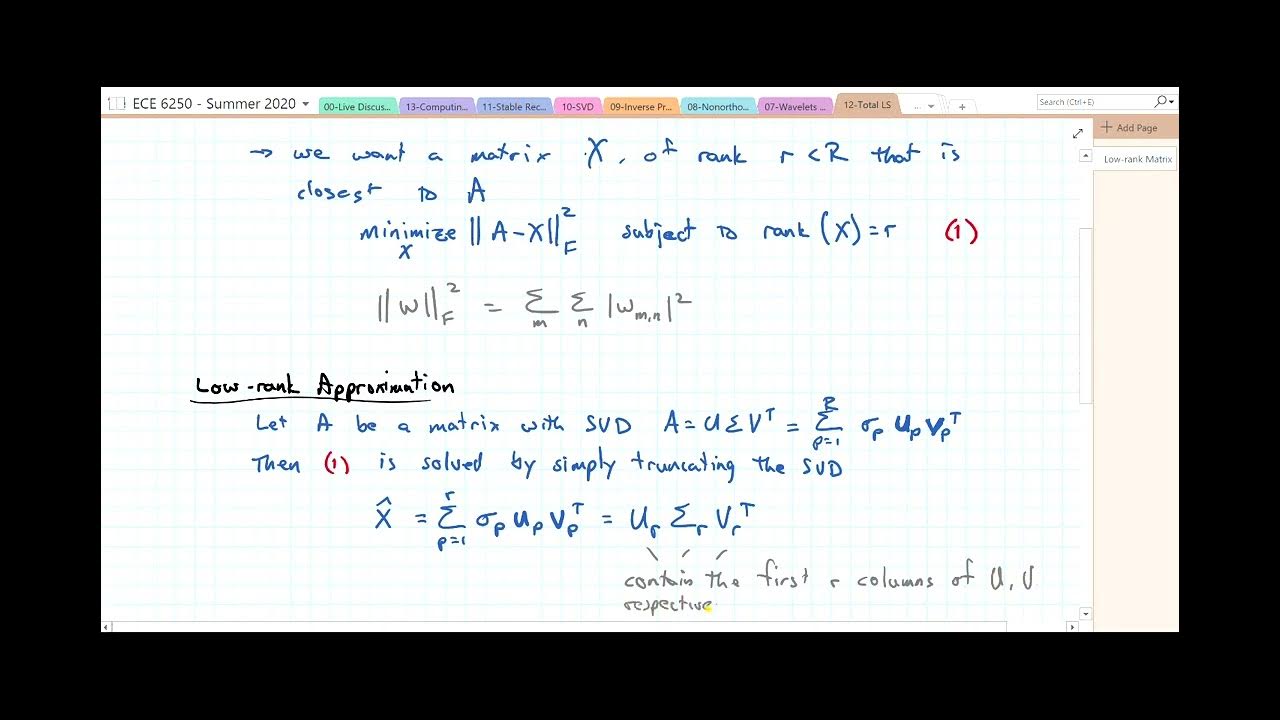 ECE 6250 - Summer 2020
00-Live Discus...
13-Computin...
11-Stable Rec...
10-SVD
09-Inverse Pr...
08-Nonortho...
07-Wavelets ...
12-Total LS
...
Search (Ctrl+E)
Add Page
Low-rank Matrix
→ we want a matrix X, of rank r < R that is
closest to A
minimize ‖A-X‖²_F subject to rank(X)=r (1)
X
‖W‖²_F = Σ_m Σ_n |W_{m,n}|²
Low-rank Approximation
Let A be a matrix with SVD A = UΣVᵀ = Σ_{p=1}^{R} σ_p u_p v_pᵀ
Then (1) is solved by simply truncating the SVD
X̂ = Σ_{p=1}^{r} σ_p u_p v_pᵀ = U_r Σ_r V_rᵀ
contain the first r columns of U, V
respective